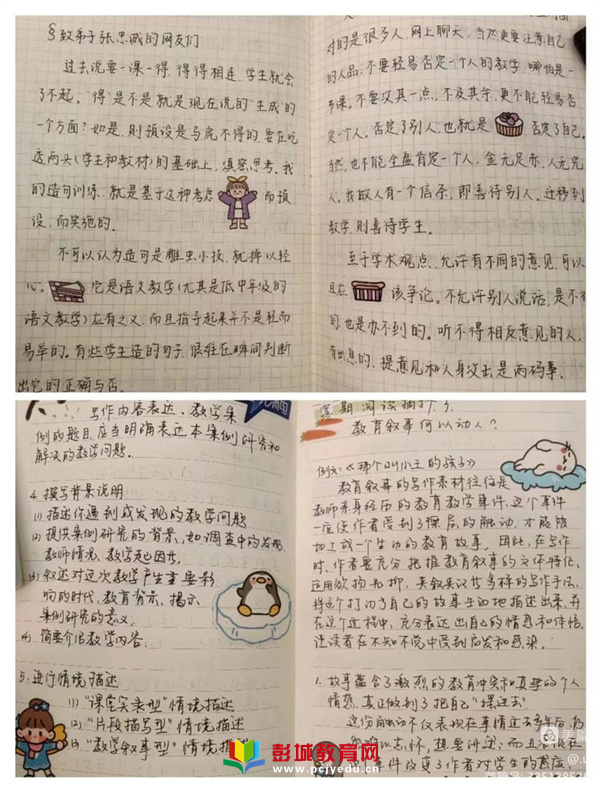 §致弟子张忠诚的网友们
过去说要一课一得,得得相连,学生就会
了不起。“得”是不是就是现在说的“生成”的
一个方面?如是,则预设是马虎不得的,要在吃
透两头(学生和教材)的基础上,缜密思考。我
的造句训练,就是基于这种考虑 而预
设,而实施的。
不可以认为造句是雕虫小技,就掉以轻
心。它是语文教学(尤其是低中年级的
语文教学)应有之义,而且指导起来并不是轻而
易举的。有些学生造的句子,很难在瞬间判断
出它的正确与否。
对的是很多人,网上聊天,当然更要注意自己
的人品,不要轻易否定一个人的教学,哪怕是一
节课。不要攻其一点,不及其余,更不能轻易否
定一个人,否定了别人,也就是 否定了自己。
当然,也不能全盘肯定一个人,金无足赤,人无完
人。我做人有一个信条,即善待别人。迁移到
教学,则善待学生。
至于学术观点,允许有不同的意见,可以
且应 该争论。不允许别人说话,是不
的,也是办不到的。听不得相反意见的人,
有出息的,提意见和人身攻击是两码事。
写作内容表达、教学案
例的题目,应当明确表达本案例研究和
解决的教学问题。
4. 撰写背景说明
(1) 描述你遇到或发现的教学问题
(2) 提供案例研究的背景,如调查中的发现、
教师情况、教学起因等。
(3) 叙述对这次教学产生重要影
响的时代、教育背景,揭示
案例研究的意义。
(4) 简要介绍教学内容。
5. 进行情境描述
(1) “课堂实录型”情境描述
(2) “片段描写型”情境描述
(3) “教学叙事型”情境描述
假期阅读摘抄 9
教育叙事何以动人?
例文:《那个叫小王的孩子》
教育叙事的写作素材往往是
教师亲身经历的教育教学事件,这个事件
一定使作者受到了深层的触动,才能够
加工成一个生动的教育故事。因此,在写作
时,作者要充分把握教育叙事的文体特征,
运用欲扬先抑、夹叙夹议等多样的写作手法,
将这个打动了自己的故事生动地描述出来,并
在这个过程中,充分表达出自己的情感和体悟,
让读者在不知不觉中受到启发和感染。
1. 故事蕴含了激烈的教育冲突和真挚的个人
情感,真正做到了把自己“摆进去”
这份触动不仅表现在事情过去多年后,仍
难以忘怀,想要讲述,而且
事件改变了作者对学生的态度
彭城教育网
www.pcjyedu.cn